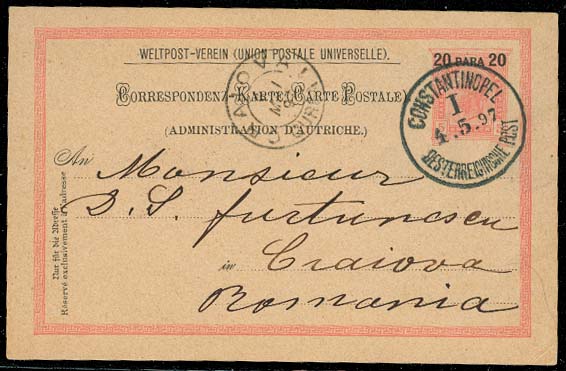 WELTPOST-VEREIN (UNION POSTALE UNIVERSELLE).
20 PARA 20
CORRESPONDENZ-KARTE (CARTE POSTALE)
(ADMINISTRATION D'AUTRICHE.)
CONSTANTINOPEL
I
4.5.97
OESTERREICHISCHE POST
An Monsieur
D. S. furtunescu
in Craiova
Romania
Nur für die Adresse
Réservé exclusivement à l'adresse